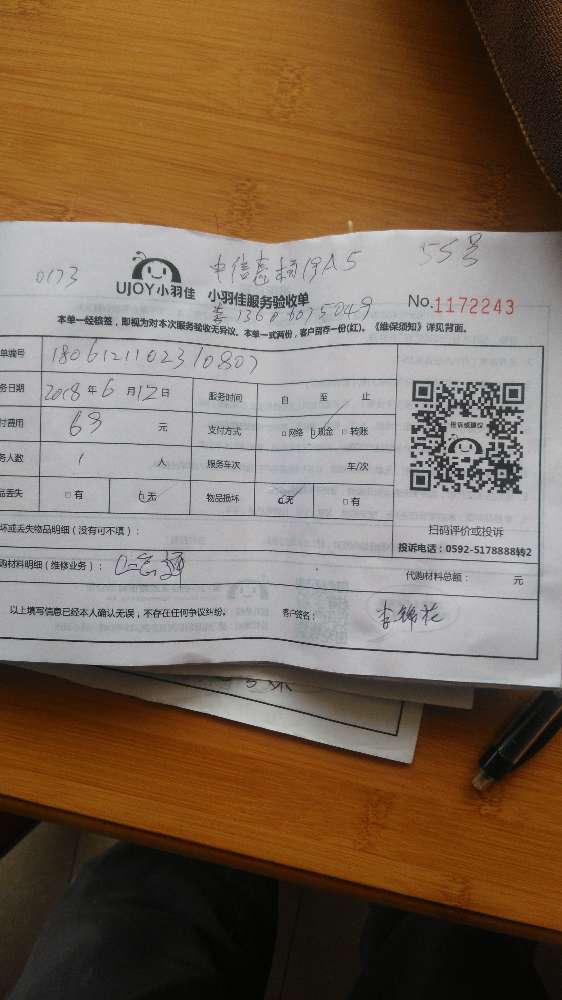 0173 55号
UJOY小羽佳 小羽佳服务验收单
No.1172243
本单一经核签，即视为对本次服务验收无异议。本单一式两份，客户留存一份(红)。《维保须知》详见背面。
单编号
务日期 2018 年 6 月 12 日 服务时间 自 至 止
付费用 63 元 支付方式 □网络 □现金 □转账
务人数 1 人 服务车次 车/次
品丢失 □有 □无 物品损坏 □无 □有
投诉或建议
扫码评价或投诉
投诉电话：0592-5178888转2
坏或丢失物品明细（没有可不填）：
购材料明细（维修业务）： 代购材料总额： 元
以上填写信息已经本人确认无误，不存在任何争议纠纷。 客户签名： 李锦花